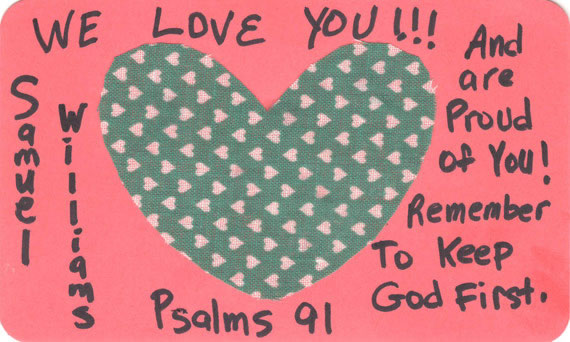 WE LOVE YOU!!!
And
are
Proud
of You!
Remember
To Keep
God First.
Samuel
Williams
Psalms 91